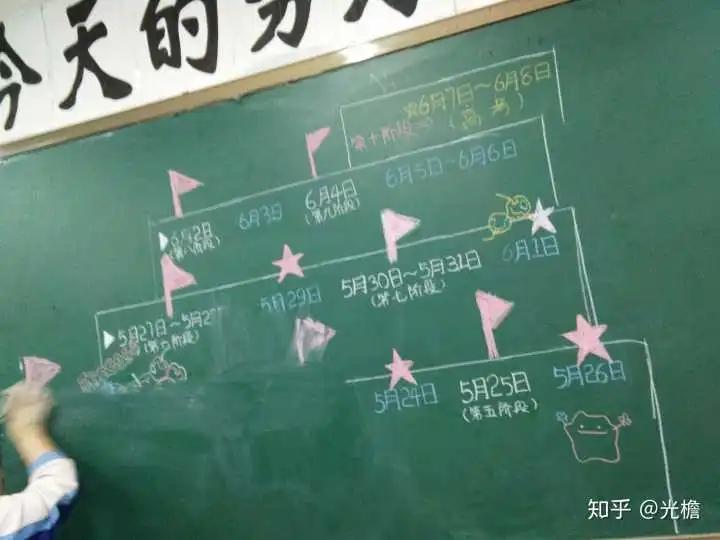 今天的努
6月7日~6月8日
第十阶段
(高考)
6月2日
(第八阶段)
6月3日
6月4日
(第九阶段)
6月5日~6月6日
5月27日~5月2
(第六阶段)
5月29日
5月30日~5月31日
(第七阶段)
6月1日
5月24日
5月25日
(第五阶段)
5月26日
知乎 @光檐